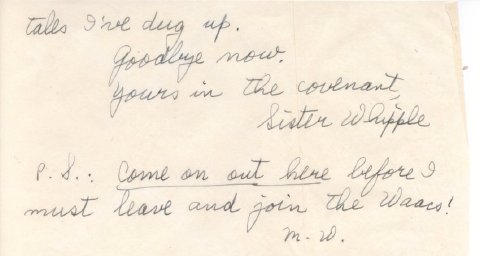 tales I've dug up.
Goodbye now.
Yours in the covenant,
Sister Whipple
P. S.: Come on out here before I
must leave and join the Waacs!
M. W.